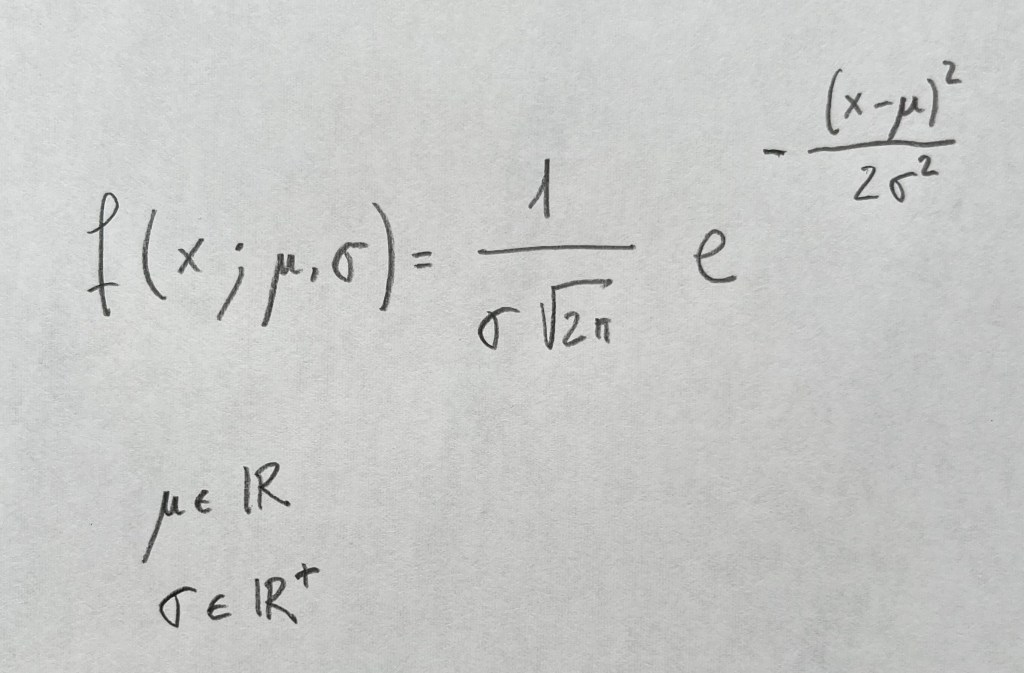 f(x; μ, σ) = \frac{1}{σ\sqrt{2π}} e^{-\frac{(x-μ)^2}{2σ^2}}
μ ∈ ℝ
σ ∈ ℝ⁺